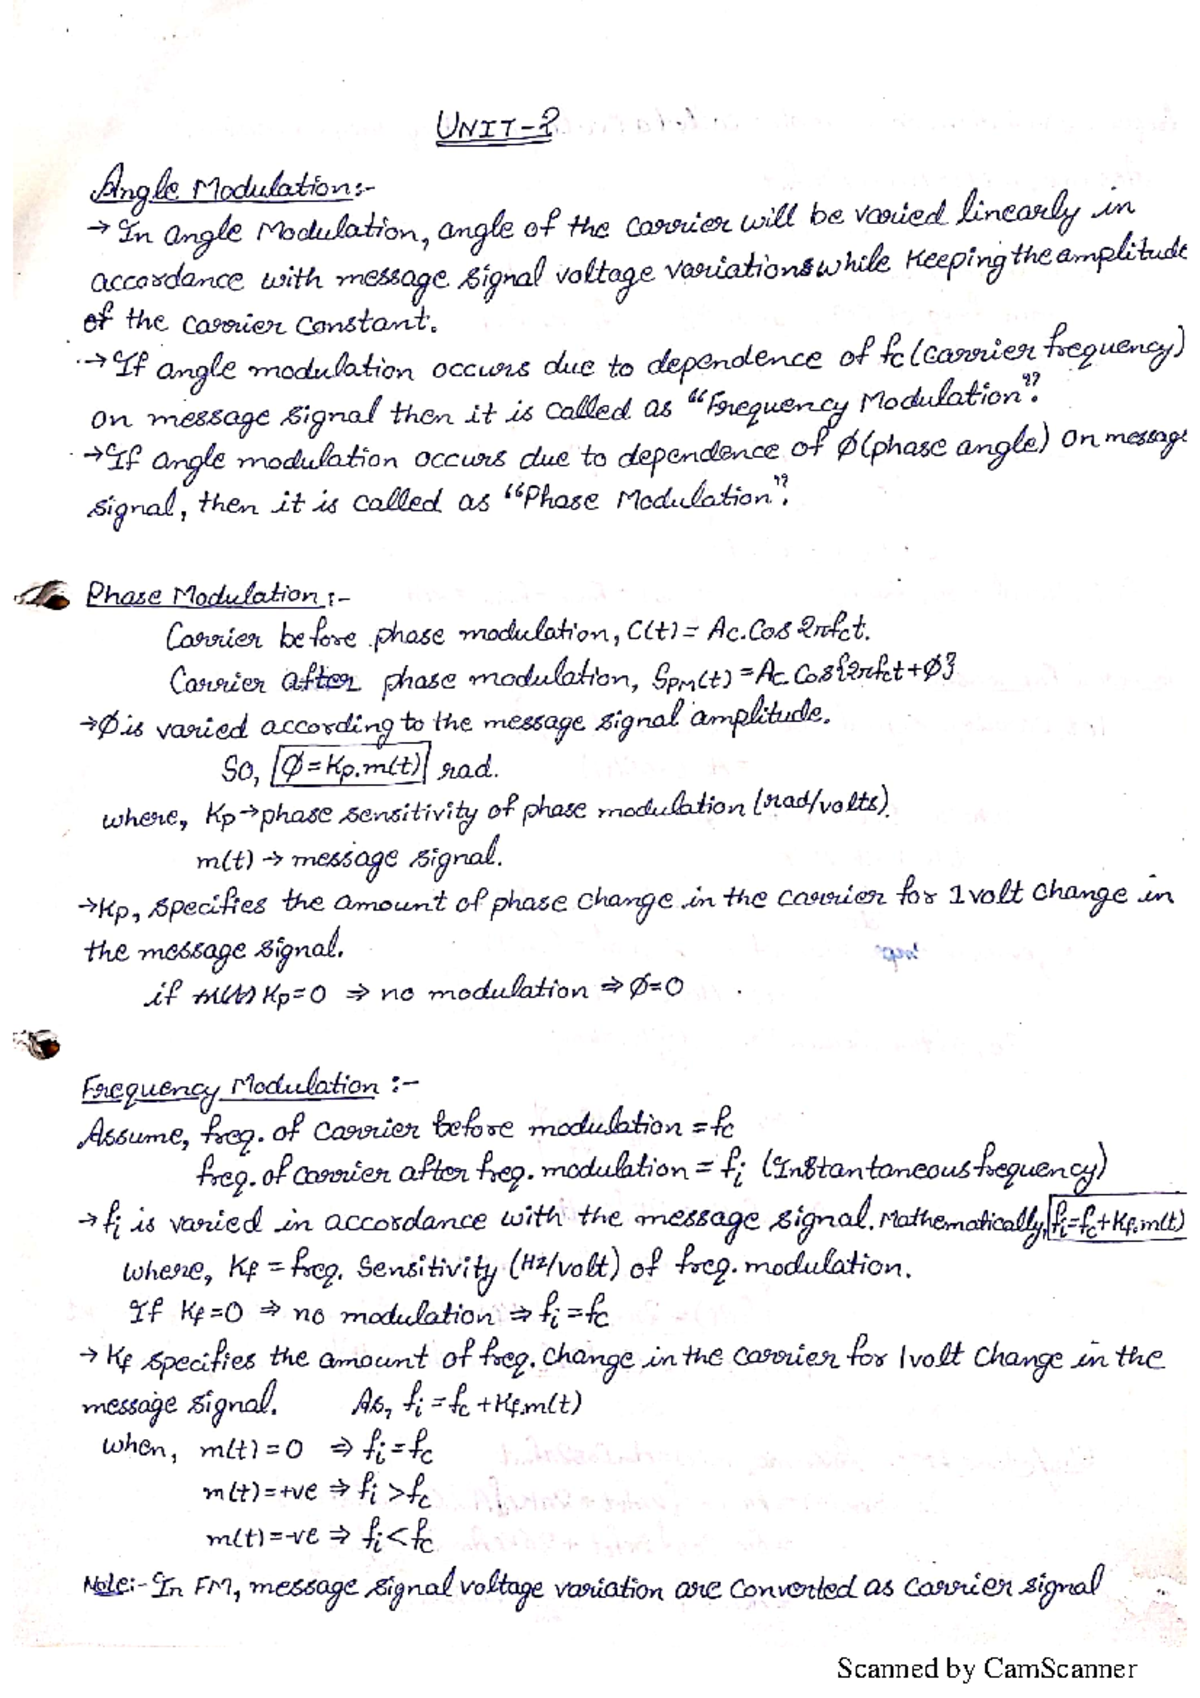 UNIT-2
Angle Modulation:-
→ In angle Modulation, angle of the carrier will be varied linearly in
accordance with message signal voltage variations while keeping the amplitude
of the carrier constant.
→ If angle modulation occurs due to dependence of fc (carrier frequency)
on message signal then it is called as "Frequency Modulation".
→ If angle modulation occurs due to dependence of Ø (phase angle) on message
signal, then it is called as "Phase Modulation".
Phase Modulation :-
Carrier before phase modulation, C(t) = Ac.Cos 2πfct.
Carrier after phase modulation, SPM(t) = Ac.Cos{2πfct + Ø}
→ Ø is varied according to the message signal amplitude.
So, Ø = Kp.m(t) rad.
where, Kp → phase sensitivity of phase modulation (rad/volts).
m(t) → message signal.
→ Kp, specifies the amount of phase change in the carrier for 1 volt change in
the message signal.
if m(t) Kp = 0 ⇒ no modulation ⇒ Ø = 0
Frequency Modulation :-
Assume, freq. of carrier before modulation = fc
freq. of carrier after freq. modulation = fi (Instantaneous frequency)
→ fi is varied in accordance with the message signal. Mathematically, fi = fc + Kf.m(t)
where, Kf = freq. Sensitivity (Hz/volt) of freq. modulation.
If Kf = 0 ⇒ no modulation ⇒ fi = fc
→ Kf specifies the amount of freq. change in the carrier for 1 volt change in the
message signal. As, fi = fc + Kf.m(t)
when, m(t) = 0 ⇒ fi = fc
m(t) = +ve ⇒ fi > fc
m(t) = -ve ⇒ fi < fc
Note:- In FM, message signal voltage variation are converted as carrier signal
Scanned by CamScanner